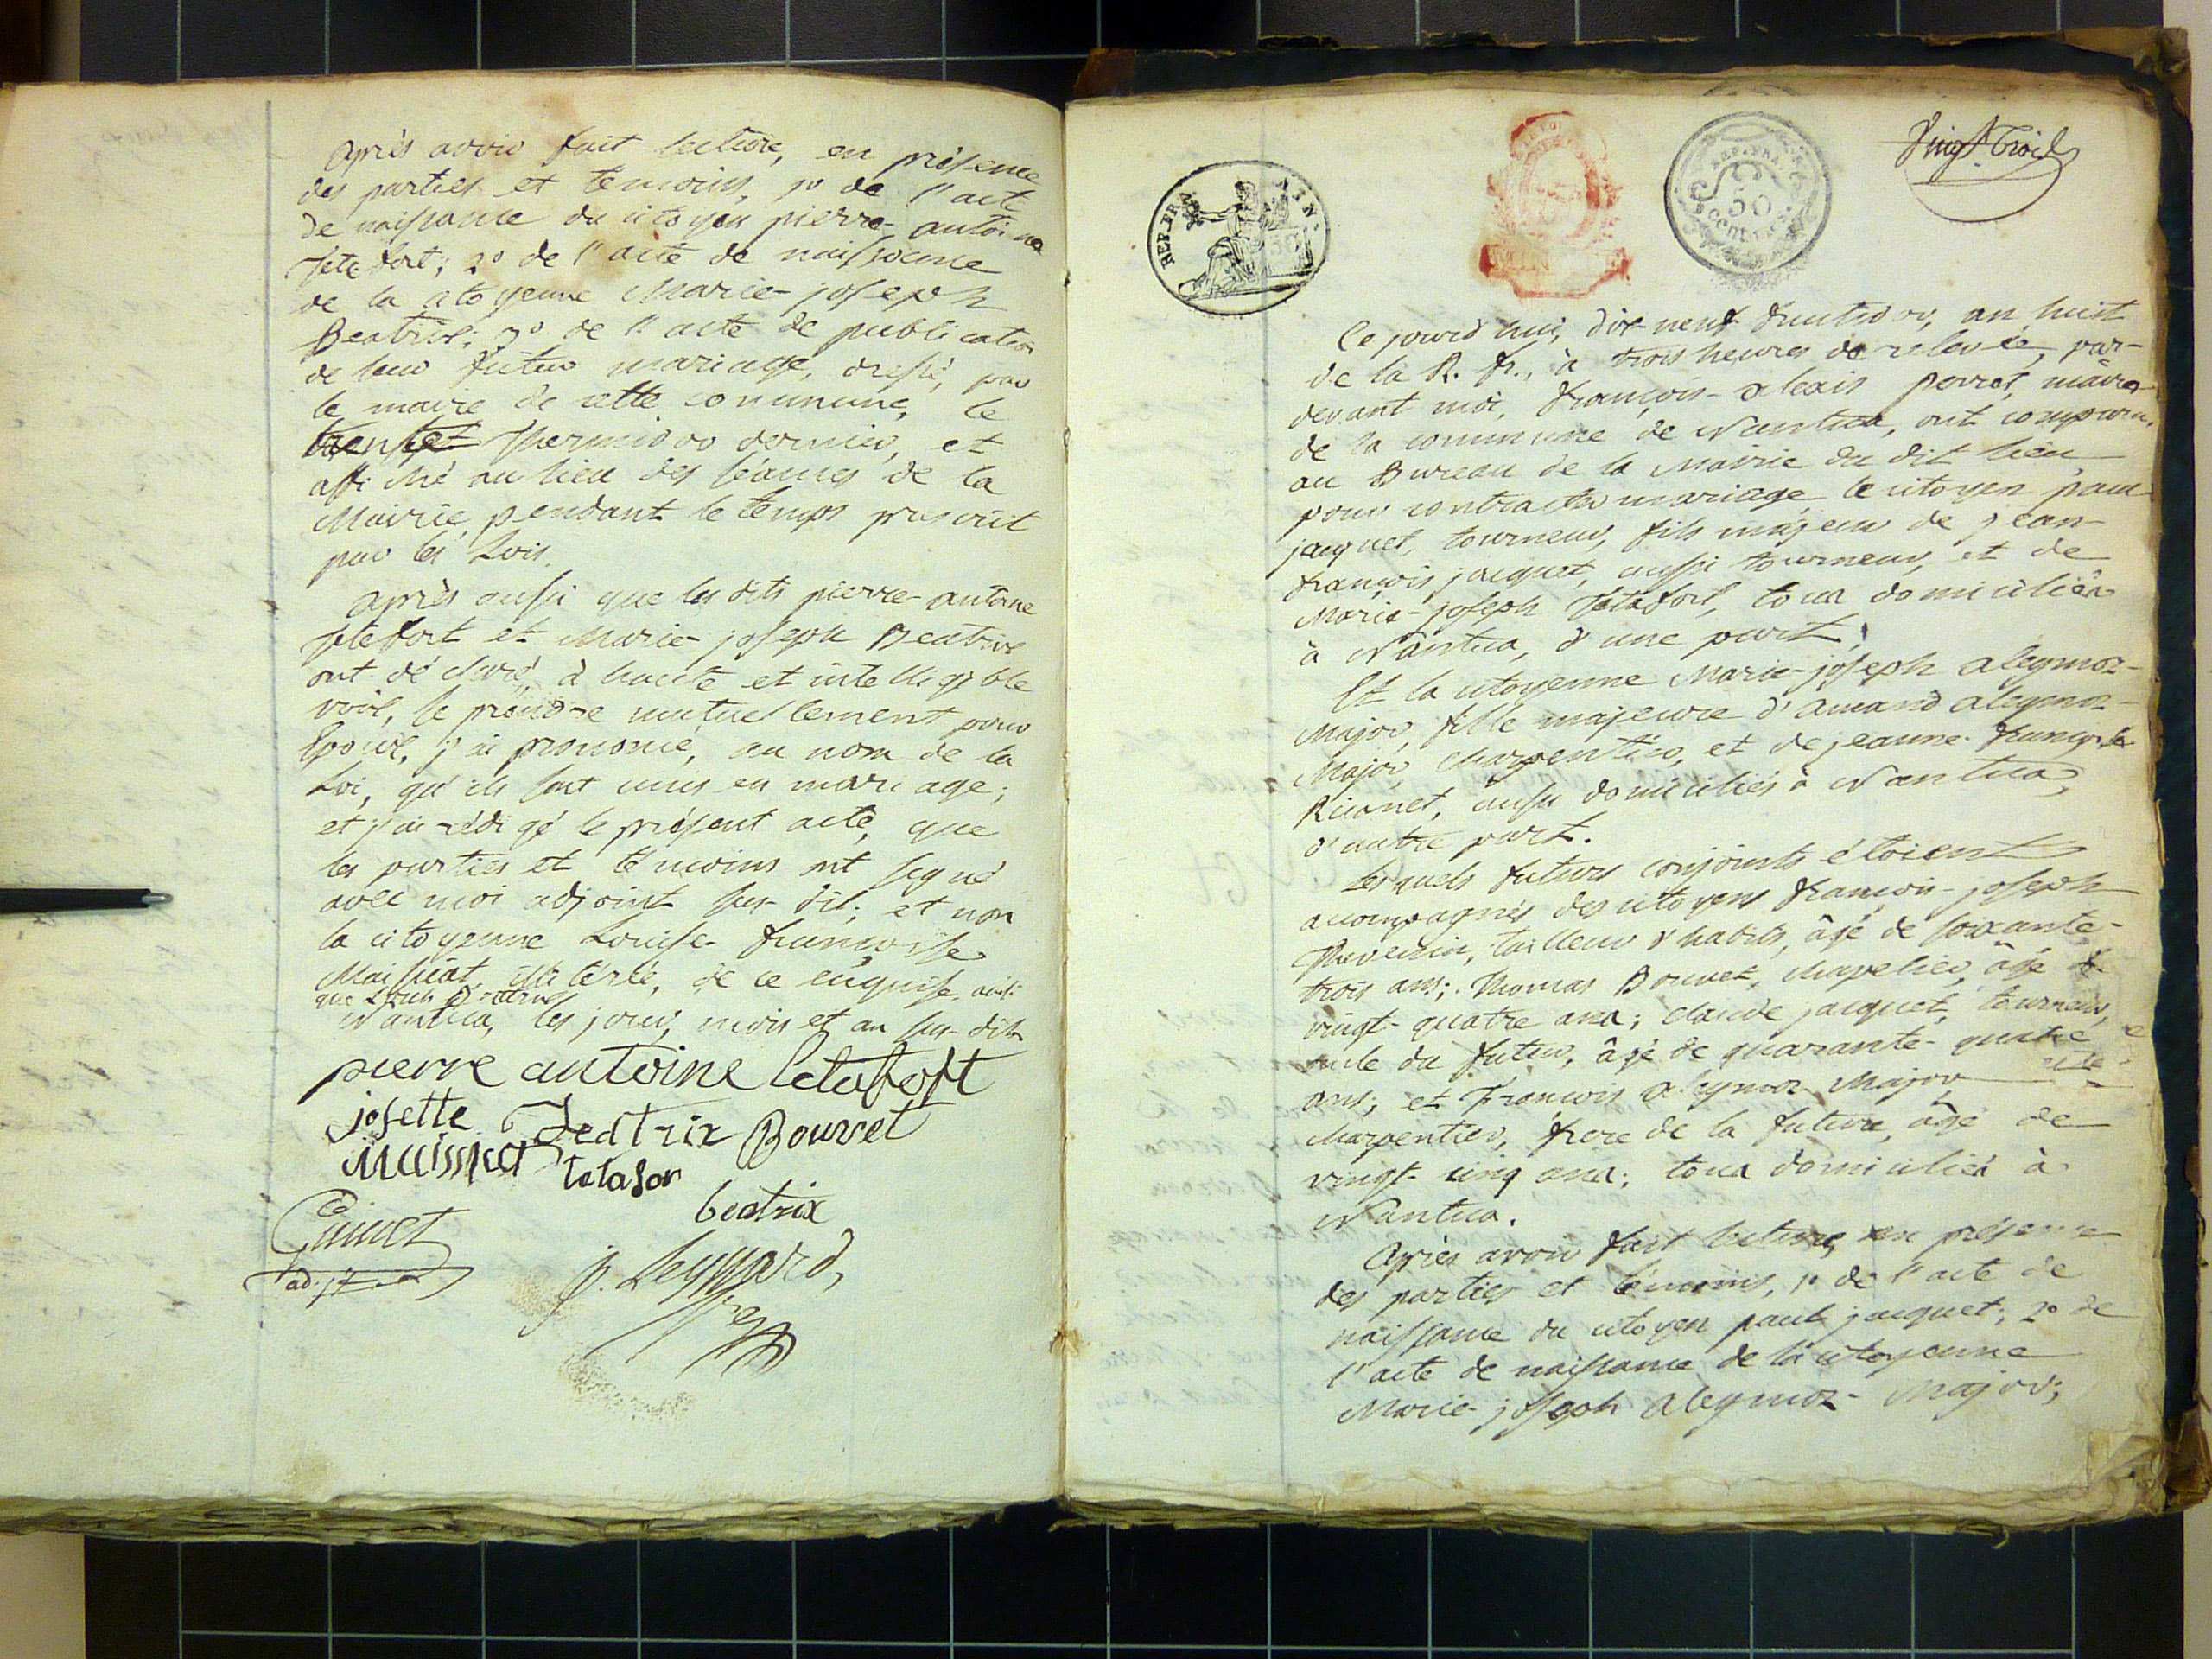 Après avoir fait lecture, en présence
des parties et temoins, 1º de l'acte
de naissance du citoyen pierre-antoine
; 2º de l'acte de naissance
de la citoyenne Marie-joseph
Beatrix; 3º de l'acte de publication
de leur futur mariage, dressé, par
le maire de cette commune, le
thermidor dernier, et
affiché au lieu des séances de la
Mairie, pendant le temps prescrit
par les Lois.
Après aussi que les dits pierre-antoine
et Marie-joseph Beatrix
ont déclaré, à haute et intelligible
voix, se prendre mutuellement pour
Epoux, j'ai prononcé, au nom de la
Loi, qu'ils sont unis en mariage;
et j'ai rédigé le présent acte, que
les parties et témoins ont signé
avec moi adjoint sus-dit; et non
la citoyenne Louise-françoise
Maissiat, illitérée, de ce enquise, ainsi
que
Nantua, les jour, mois et an sus-dits
pierre antoine letafort
josette beatrix Bouvet
maissiat letafor
beatrix
Guinet
adjt
j. Leyssard,
REP. FRA
REP. FRA
50
CENT.
Vingt-Trois
Ce jourd'hui, dix-neuf fructidor, an huit
de la R. fr., à trois heures de relevée, par-
devant moi, françois-alexis perret, maire
de la commune de Nantua, ont comparu,
au Bureau de la Mairie du dit lieu,
pour contracter mariage, le citoyen paul
jacquet, tourneur, fils majeur de jean-
françois jacquet, aussi tourneur, et de
Marie-joseph létafort, tous domiciliés
à Nantua, d'une part;
Et la citoyenne Marie-joseph aleymoz-
Major, fille majeure d'amand aleymoz-
Major, charpentier, et de jeanne-françoise
, aussi domiciliés à Nantua,
d'autre part.
Lesquels futurs conjoints étoient
accompagnés des citoyens françois-joseph
thevenin, tailleur d'habits, âgé de soixante-
trois ans; Thomas Bouvet, chapelier, âgé de
vingt-quatre ans; claude jacquet, tourneur,
oncle du futur, âgé de quarante-quatre
ans; et François aleymoz-Major,
charpentier, frere de la future, âgé de
vingt-cinq ans; tous domiciliés à
Nantua.
Après avoir fait lecture, en présence
des parties et témoins, 1º de l'acte de
naissance du citoyen paul jacquet; 2º de
l'acte de naissance de la citoyenne
Marie-joseph aleymoz-Major;